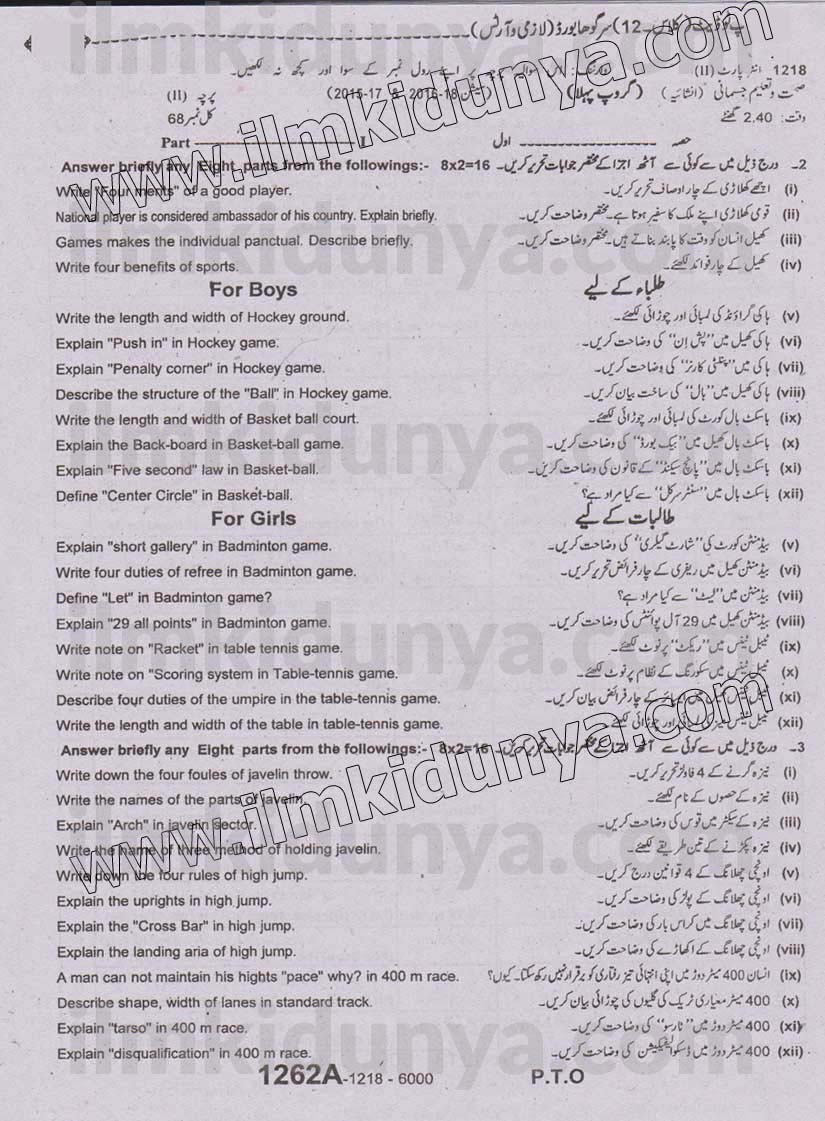 پ ٹو ڈیٹ (کلاس۔12) سرگودھا بورڈ (لازمی و آرٹس)
1218 انٹر پارٹ (II) وارننگ: اس سوالیہ پرچہ پر اپنے رول نمبر کے سوا اور کچھ نہ لکھیں۔
صحت و تعلیم جسمانی (انشائیہ) (گروپ پہلا) (سیشن 18-2016 & 17-2015) پرچہ (II)
وقت: 2.40 گھنٹے کل نمبر 68
Part ---------------- I حصہ ---------------- اول
Answer briefly any Eight parts from the followings:- 8x2=16 2۔ درج ذیل میں سے کوئی سے آٹھ اجزا کے مختصر جوابات تحریر کریں۔
Write "Four merits" of a good player. (i) اچھے کھلاڑی کے چار اوصاف تحریر کریں۔
National player is considered ambassador of his country. Explain briefly. (ii) قومی کھلاڑی اپنے ملک کا سفیر ہوتا ہے۔ مختصر وضاحت کریں۔
Games makes the individual panctual. Describe briefly. (iii) کھیل انسان کو وقت کا پابند بناتے ہیں۔ مختصر وضاحت کریں۔
Write four benefits of sports. (iv) کھیل کے چار فوائد لکھئے۔
For Boys طلباء کے لیے
Write the length and width of Hockey ground. (v) ہاکی گراؤنڈ کی لمبائی اور چوڑائی لکھئے۔
Explain "Push in" in Hockey game. (vi) ہاکی کھیل میں "پش اِن" کی وضاحت کریں۔
Explain "Penalty corner" in Hockey game. (vii) ہاکی میں "پنلٹی کارنر" کی وضاحت کریں۔
Describe the structure of the "Ball" in Hockey game. (viii) ہاکی کھیل میں "بال" کی ساخت بیان کریں۔
Write the length and width of Basket ball court. (ix) باسکٹ بال کورٹ کی لمبائی اور چوڑائی لکھئے۔
Explain the Back-board in Basket-ball game. (x) باسکٹ بال کھیل میں "بیک بورڈ" کی وضاحت کریں۔
Explain "Five second" law in Basket-ball. (xi) باسکٹ بال میں "پانچ سیکنڈ" کے قانون کی وضاحت کریں۔
Define "Center Circle" in Basket-ball. (xii) باسکٹ بال میں "سنٹر سرکل" سے کیا مراد ہے؟
For Girls طالبات کے لیے
Explain "short gallery" in Badminton game. (v) بیڈمنٹن کورٹ کی "شارٹ گیلری" کی وضاحت کریں۔
Write four duties of refree in Badminton game. (vi) بیڈمنٹن کھیل میں ریفری کے چار فرائض تحریر کریں۔
Define "Let" in Badminton game? (vii) بیڈمنٹن میں "لیٹ" سے کیا مراد ہے؟
Explain "29 all points" in Badminton game. (viii) بیڈمنٹن کھیل میں 29 آل پوائنٹس کی وضاحت کریں۔
Write note on "Racket" in table tennis game. (ix) ٹیبل ٹینس میں "ریکٹ" پر نوٹ لکھئے۔
Write note on "Scoring system in Table-tennis game. (x) ٹیبل ٹینس میں سکورنگ کے نظام پر نوٹ لکھئے۔
Describe four duties of the umpire in the table-tennis game. (xi) ٹیبل ٹینس کے چار فرائض بیان کریں۔
Write the length and width of the table in table-tennis game. (xii) ٹیبل ٹینس اور چوڑائی لکھئے۔
Answer briefly any Eight parts from the followings:- 8x2=16 3۔ درج ذیل میں سے کوئی سے آٹھ اجزا کے مختصر جوابات تحریر کریں۔
Write down the four foules of javelin throw. (i) نیزہ گرنے کے 4 فاولز تحریر کریں۔
Write the names of the parts of javelin. (ii) نیزہ کے حصوں کے نام لکھئے۔
Explain "Arch" in javelin sector. (iii) نیزہ کے سیکٹر میں قوس کی وضاحت کریں۔
Write the name of three method of holding javelin. (iv) نیزہ پکڑنے کے تین طریقے لکھئے۔
Write down the four rules of high jump. (v) اونچی چھلانگ کے 4 قوانین درج کریں۔
Explain the uprights in high jump. (vi) اونچی چھلانگ کے پولز کی وضاحت کریں۔
Explain the "Cross Bar" in high jump. (vii) اونچی چھلانگ میں کراس بار کی وضاحت کریں۔
Explain the landing aria of high jump. (viii) اونچی چھلانگ کے اکھاڑے کی وضاحت کریں۔
A man can not maintain his hights "pace" why? in 400 m race. (ix) انسان 400 میٹر دوڑ میں اپنی انتہائی تیز رفتاری کو برقرار نہیں رکھ سکتا۔ کیوں؟
Describe shape, width of lanes in standard track. (x) 400 میٹر معیاری ٹریک کی گلیوں کی چوڑائی بیان کریں۔
Explain "tarso" in 400 m race. (xi) 400 میٹر دوڑ میں "ٹارسو" کی وضاحت کریں۔
Explain "disqualification" in 400 m race. (xii) 400 میٹر دوڑ میں ڈسکوالیفیکیشن کی وضاحت کریں۔
1262A-1218 - 6000 P.T.O
www.ilmkidunya.com
www.ilmkidunya.com
ilmkidunya.com